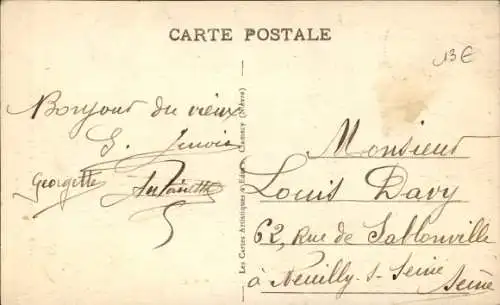 CARTE POSTALE
13€
Bonjour du vieux
G.
Georgette
Les Cartes Artistiques Clamecy (Nièvre)
Monsieur
Louis Davy
62, Rue de Sablonville
à Neuilly-s-Seine
Seine